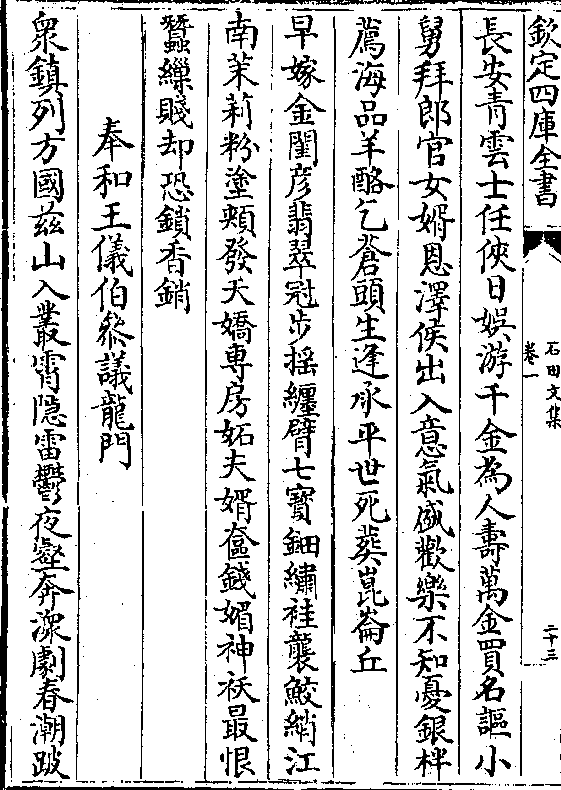 欽定四庫全書
石田文集
卷一
二十三
長安青雲士任俠日娯游千金為人壽萬金買名謳小
舅拜郎官女婿恩澤侯出入意氣盛歡樂不知憂銀柈
薦海品羊酪乞蒼頭生逢承平世死葬崑崙丘
早嫁金閨彦翡翠冠步揺纒臂七寶鈿繡袿襲鮫綃江
南茉莉粉塗頰發天嬌専房妬夫婿奩錢媚神祅最恨
蠶繅賤却恐鎖香銷
奉和王儀伯叅議龍門
衆鎮列方國兹山入叢霄隠雷鬱夜壑奔湍劇春潮跛